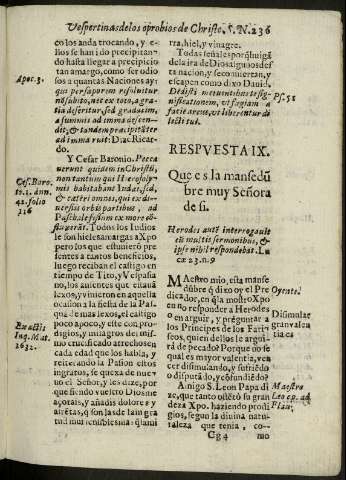 Vespertinas de los oprobios de Christo. ¶. N. 236
co los anda trocando, y e-
llos se han ido precipitan-
do hasta llegar a precipicio
tan amargo, como ser odio
sos a quantas Naciones ay:
qui per saporem resoluitur
non subito, nec ex toto, a gra-
tia deseritur, sed gradatim,
a summis ad imma descen-
dit, & tandem præcipitãter
ad imma ruit: Diac Ricar-
do.
Apoc. 3.
Y Cesar Baronio. Pecca
uerunt quidem in Christũ,
non tantum qui Hierosoly-
mis habitabant Iudæi, sed,
& cæteri omnes, qui ex di-
uersis orbis partibus, ad
Paschale festum ex more cõ-
fluxerãt. Todos los Iudios
se son hieles amargas a Xpo
pero los que estuuierõ pre
sentes a tantos beneficios,
luego reciban el castigo en
tiempo de Tito, y Vespasia
no, los ausentes que estauã
lexos, y vinieron en aquella
ocasion a la fiesta de la Pas-
qua de mas lexos, el castigo
poco a poco, y este con pro-
digios, y milagros de mis-
mo crucificado arrechosen
cada edad que los habla, y
reiterando la Pasion estos
ingratos, se quexa de nue-
uo el Señor, y les dize, por
que siendo vuestro Dios me
açotais, y añadis dolore y
afrẽtas, q̃ son las de la in gra
tud mui sensiblesima: quani
Ces. Baro.
to. 1. ann.
42. folio
316
Ex actis
Inq. Mat.
1632.
tra, hiel, y vinagre.
Todas señales por q̃ huigã
de la ira de Dios aiguios des
ta nacion, y se conuiertan, y
escapen como dixo Dauid.
Dedisti metuentibus te sig-
nificationem, vt fugiam a
facie arcus, vt liberentur di
lecti tui.
Ps. 58
RESPVESTA IX.
Que es la mansedũ
bre muy Señora
de si.
Herodes autẽ interrogaba
eũ multis sermonibus, &
ipse nihil respondebat. Lu
cæ 23. n. 9
Maestro mio, esta manse
dũbre q̃ dixo oy el Pre
dicador, en q̃ la mostro Xpo
en no responder a Herodes
o en arguir, y preguntar a
los Principes de los Fari-
seos, quien dellos le argui-
rá de pecado? Porque no se
qual es mayor valentia, ven
cer disimulando, y sufriẽdo
o disputãdo, y cõfundiẽdo?
Oyente.
Disimular
gran valen
tia es
Amigo S. Leon Papa di
ze, que tanto ostẽto su gran
deza Xpo. haziendo prodi
gios, segun la diuina natu-
raleza que tenia, co-
Maestro
Leo ep. ad
Flau.
Gg 4 mo